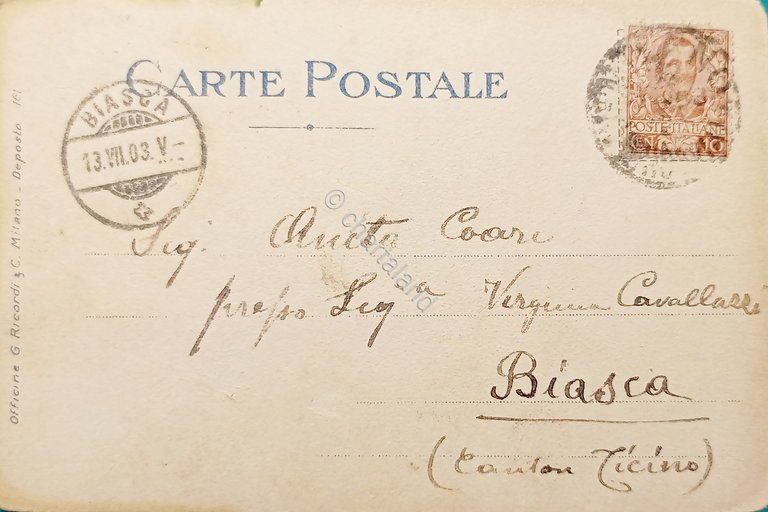 CARTE POSTALE
BIASCA
13.VII.03.V-
POSTE ITALIANE
10
Sig. Aneta Coari
presso Sig.a Virginia Cavallazzi
Biasca
(Canton Ticino)
Officine G Ricordi & C. Milano - Deposto 161
© chartaland